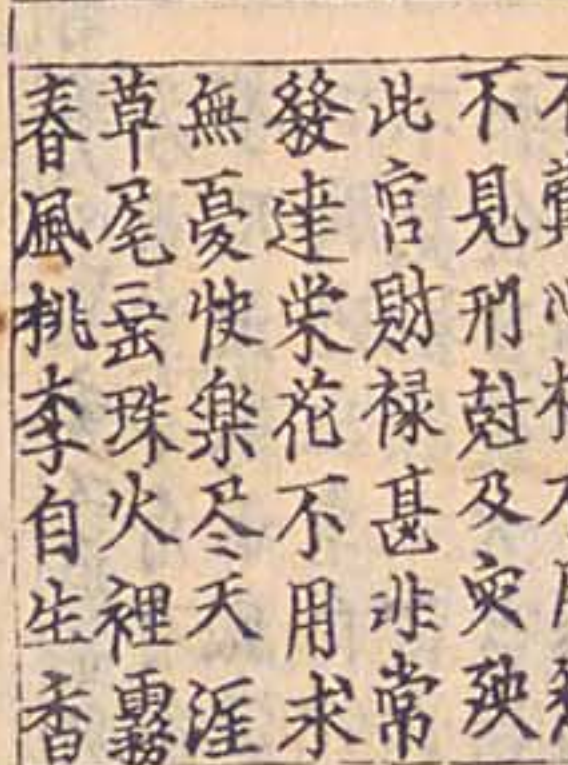 不見刑尅及灾殃
此宮財禄甚非常
發達栄花不用求
無憂快楽尽天涯
草尾珠火裡霧
春風桃李自生香